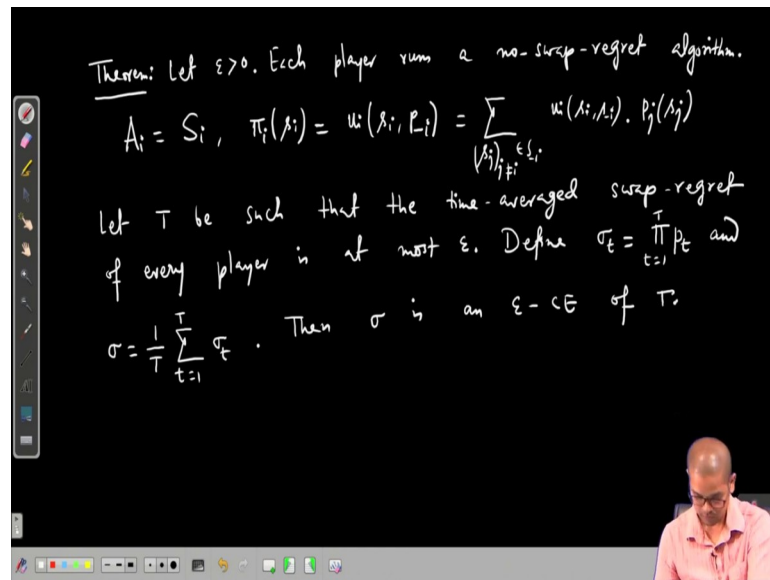 Theorem: Let ε>0. Each player runs a no-swap-regret algorithm.
A_i = S_i, π_i(s_i) = u_i(s_i, P_-i) = Σ_{(s_j)_{j≠i} ∈ S_-i} u_i(s_i, s_-i). P_j(s_j)
Let T be such that the time-averaged swap-regret
of every player is at most ε. Define σ_t = ∏_{t=1}^{T} p_t and
σ = 1/T Σ_{t=1}^{T} σ_t. Then σ is an ε-CE of Γ.